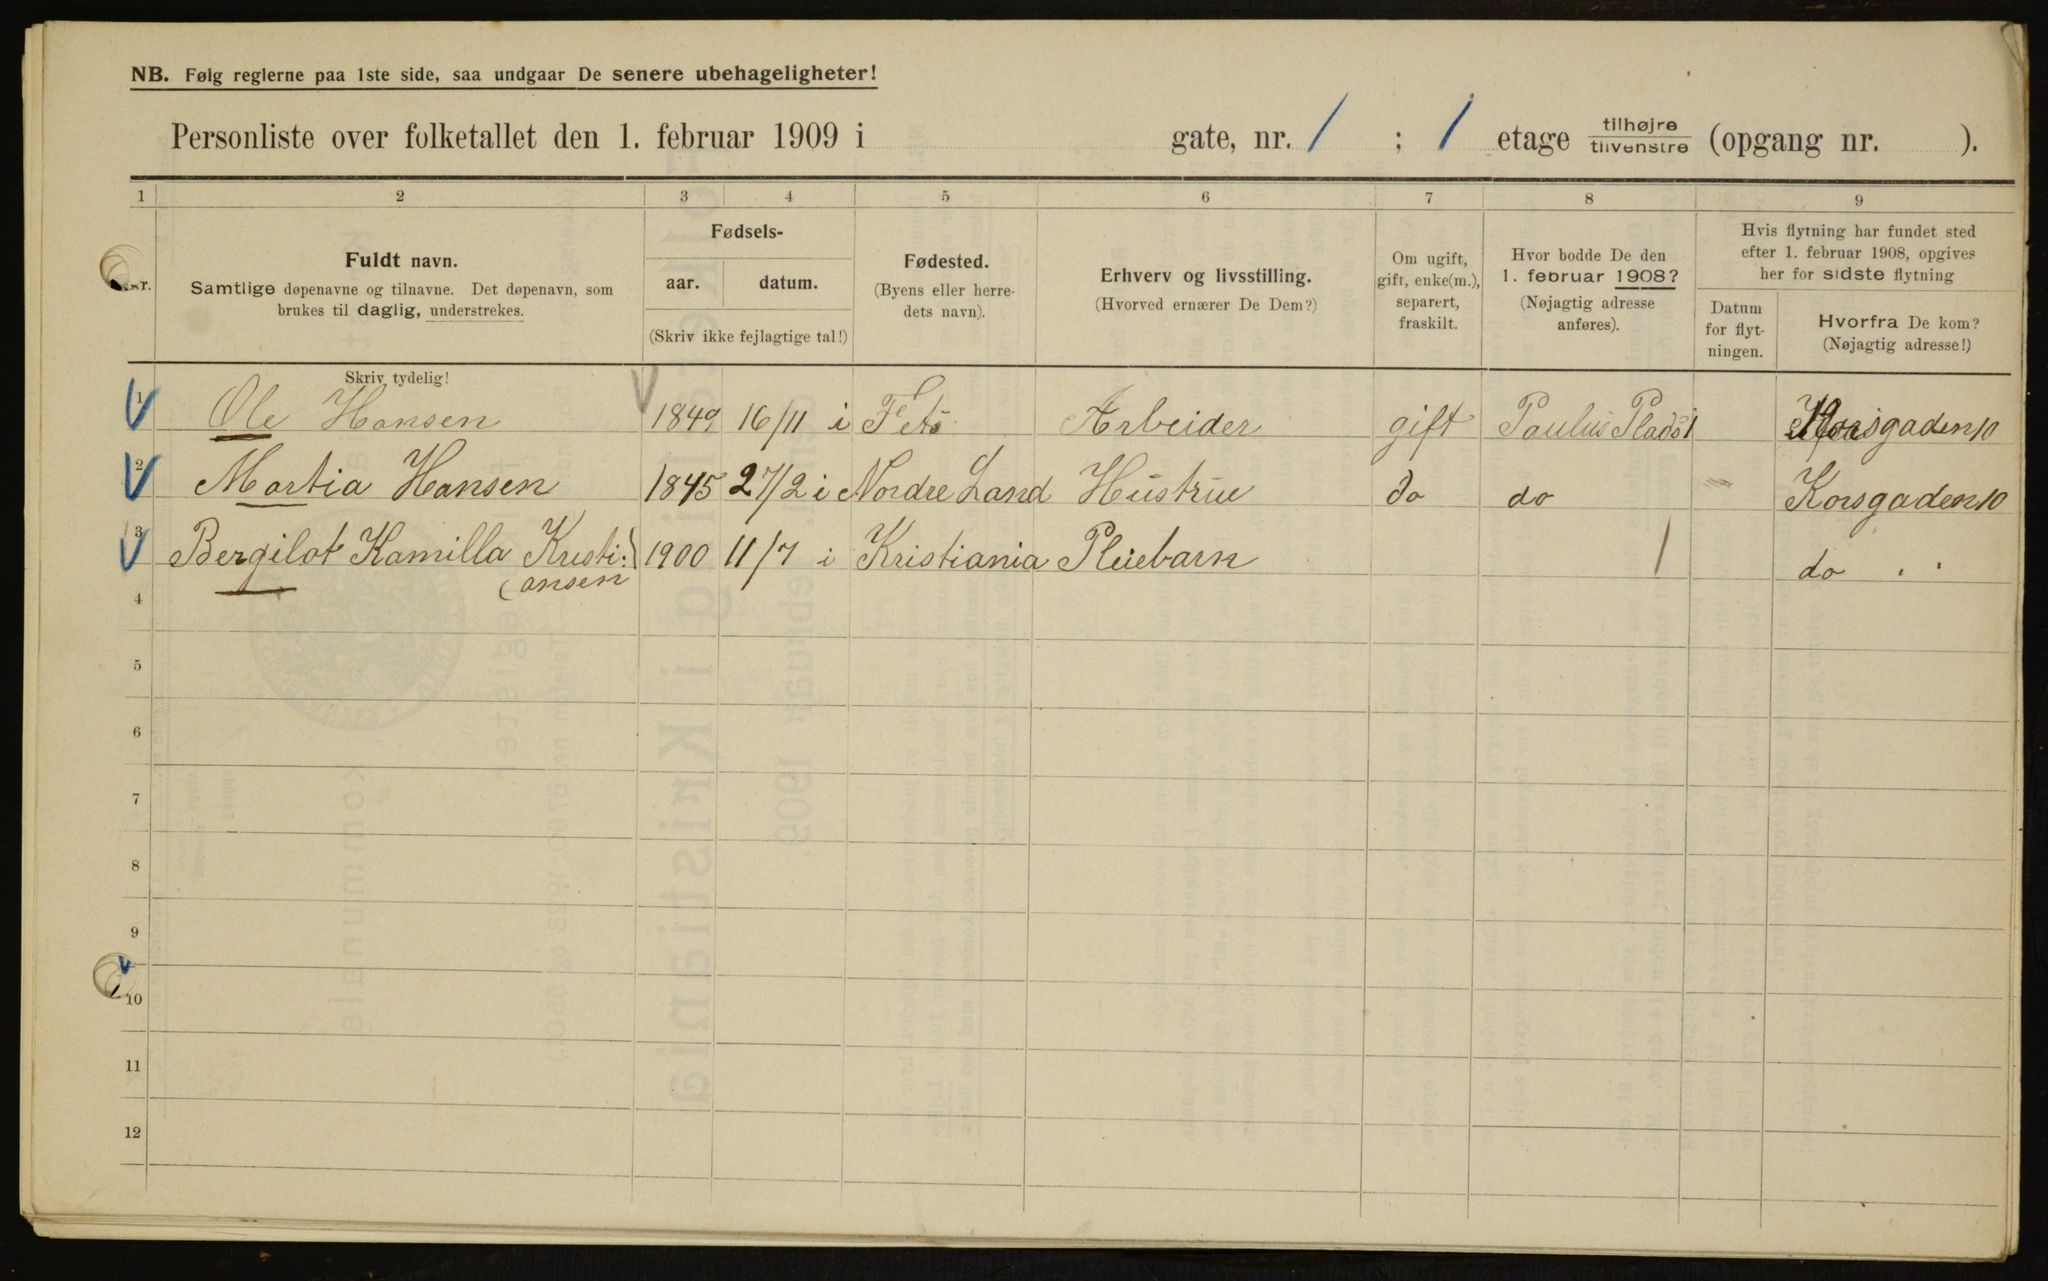 NB. Følg reglerne paa 1ste side, saa undgaar De senere ubehageligheter!
Personliste over folketallet den 1. februar 1909 i gate, nr. 1 ; 1 etage tilhøjre tilvenstre (opgang nr. ).
1 2 3 4 5 6 7 8 9
nr.
Fuldt navn.
Samtlige døpenavne og tilnavne. Det døpenavn, som
brukes til daglig, understrekes.
Skriv tydelig!
Fødsels-
aar. datum.
(Skriv ikke fejlagtige tal!)
Fødested.
(Byens eller herre-
dets navn).
Erhverv og livsstilling.
(Hvorved ernærer De Dem?)
Om ugift,
gift, enke(m.),
separert,
fraskilt.
Hvor bodde De den
1. februar 1908?
(Nøjagtig adresse
anføres).
Hvis flytning har fundet sted
efter 1. februar 1908, opgives
her for sidste flytning
Datum
for flyt-
ningen.
Hvorfra De kom?
(Nøjagtig adresse!)
1 Ole Hansen 1849 16/11 i Fets Arbeider gift Paulus Plads 1 Korsgaden 10
2 Martia Hansen 1845 27/2 i Nordre Land Hustrue do do " Korsgaden 10
3 Bergilot Kamilla Kristi: 1900 11/7 i Kristiania Pleiebarn 1 do " "
(ansen
4
5
6
7
8
9
10
11
12